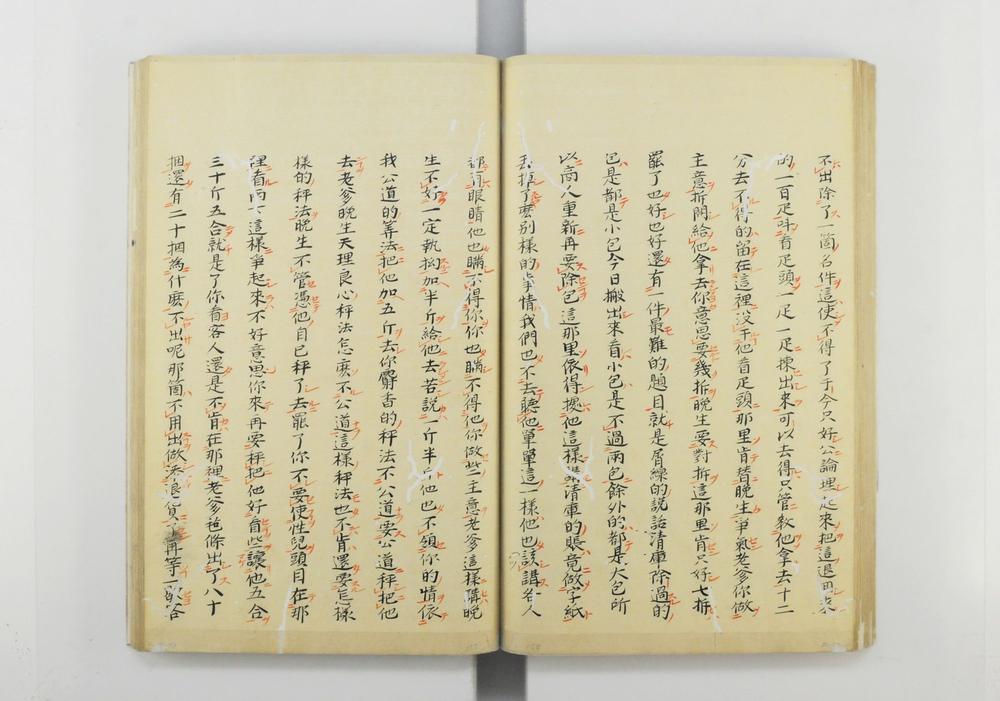 不出除了一箇名件這使不得了于今只好公論埋起來把這退回来
的一百疋呌看疋頭一疋一疋揀出來可以去得只管教他拿去十二
分去不得的留在這裡没干他看疋頭那里肯替晚生爭氣老爹你做
主意拆開給他拿去你意思要幾拆晚生要對拆這那里肯只好七拆
罷了也好也好還有一件最難的題目就是屑線的説話清庫除過的
包是都是小包今日搬出來看小包是不過兩包餘外的都是大包所
以商人重新再要除包這那里依得據他這樣講清庫的賬竟做字紙
丢掉了麽别樣的事情我們也不去聽他單單這一樣他也該講各人
都有眼睛他也瞞不得你你也瞞不得他你做些主意老爹這樣講晚
生不好一定執拗加半斤給他去苦説一斤半斤他也不領你的情依
我公道的筭法把他加五斤去你麝香的秤法不公道要公道秤把他
去老爹晚生天理良心秤法怎麽不公道這様秤法也不肯還要怎樣
樣的秤法晚生不管憑他自已秤了去罷了你不要使性兒頭目在那
裡看両下這樣爭起來不好意思你來再要秤把他好看些讓他五合
三十斤五合就是了你看客人還是不肯在那裡老爹包條出了八十
捆還有二十捆為什麽不出呢那箇不用出做添退貨了再等一歇合